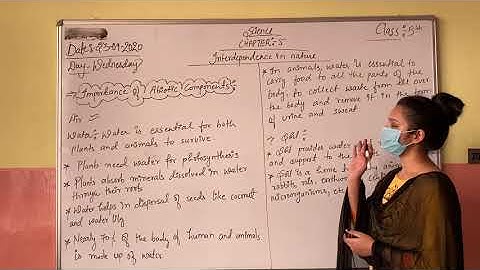 Science
Date: 23-01-2020
CHAPTER: 5
Class: 5th
Interdependence in nature
Day: Wednesday
⇒ Importance of Abiotic Components:
Air =
Water: Water is essential for both
Plants and animals to survive
* Plants need water for photosynthesis
* Plants absorb minerals dissolved in water
through their roots
* Water helps in dispersal of seeds like coconut
and water lily
* Nearly 70% of the body of human and animals
is made up of water
* In animals, water is essential to
carry food to all the parts of the
body, to collect waste from all over
the body and remove it in the form
of urine and sweat
⇒ Soil =
* Soil provides water
and support to the
* Soil is a home
rabbits, rats, earthworm
microorganisms, etc